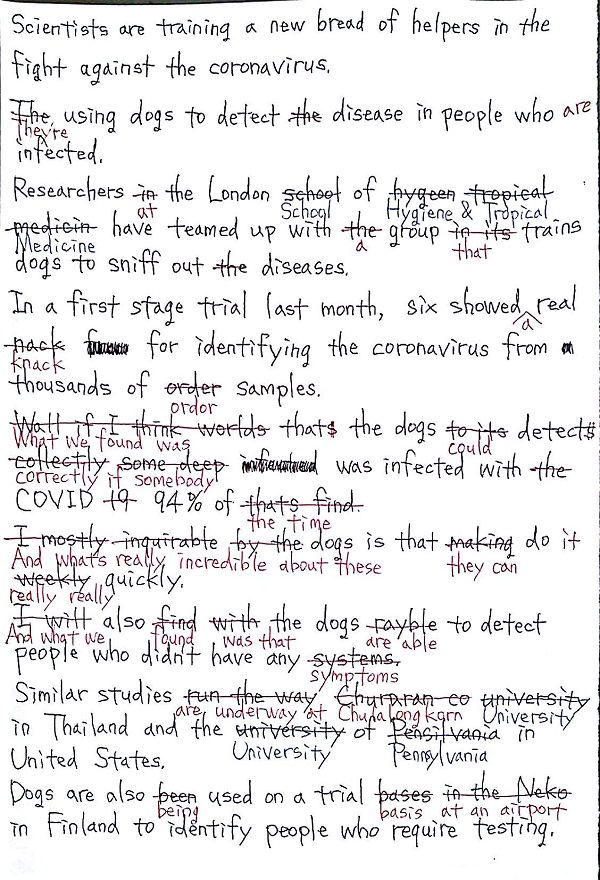 Scientists are training a new bread of helpers in the
fight against the coronavirus.
The, using dogs to detect the disease in people who are
They're
infected.
Researchers in the London school of hygeen tropical
at School Hygiene & Tropical
medicin have teamed up with the group in its trains
Medicine a that
dogs to sniff out the diseases.
In a first stage trial last month, six showed real
a
nack for identifying the coronavirus from
knack
thousands of order samples.
ordor
Wall if I think worlds thats the dogs to its detects
What we found was could
collectly some deep was infected with the
correctly if somebody
COVID 19 94% of thats find.
the time
I mostly inquirable by the dogs is that making do it
And what's really incredible about these they can
weekly quickly.
really really
I will also find with the dogs rayble to detect
And what we found was that are able
people who didn't have any systems.
symptoms
Similar studies run the way Churaran co university
are underway at Chulalongkorn University
in Thailand and the university of Pensilvania in
University Pennylvania
United States.
Dogs are also been used on a trial bases in the Neko
being basis at an airport
in Finland to identify people who require testing.